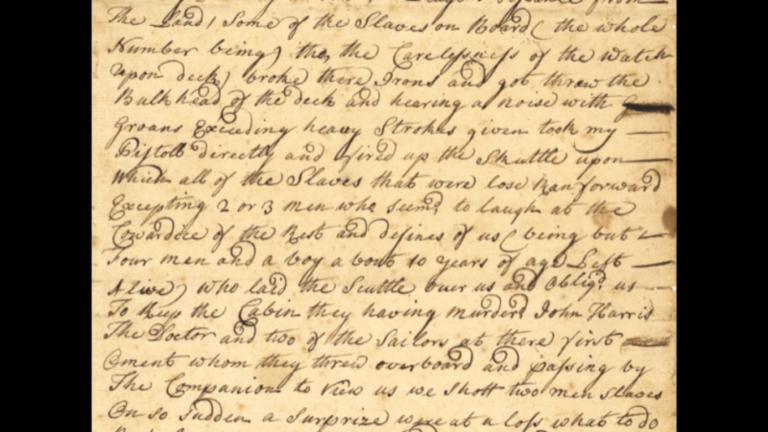 from
The Land) Some of the Slaves on Board (the whole
Number being) thō the Carelessness of the Watch
upon deck) broke there Irons and got threw the
Bulkhead of the deck and hearing a noise with
Groans Exceding heavy Strokes given took my
Pistoll directly and fired up the Skuttle upon
Which all of the Slaves that were lose Ran forward
Excepting 2 or 3 men who seemd to laugh at the
Cowardice of the Rest and defines of us (being but
Four men and a boy about 10 years of age Left
Alive) who laid the Scuttle over us and Obligd us
To Keep the Cabin they having murderd John Harris
The Doctor and two of the Sailors at there first
ement whom they threw overboard and passing by
The Companion to view us we Shott two men Slaves
On so Sudden a Surprize were at a loss what to do